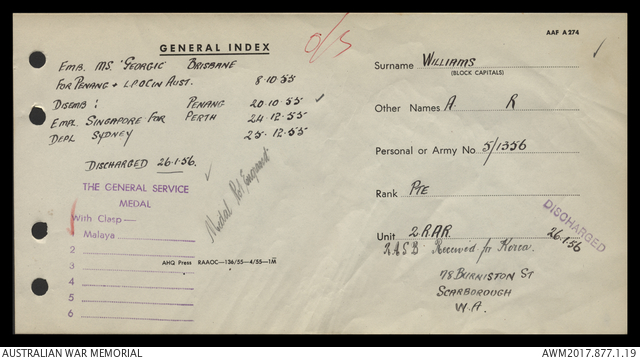 GENERAL INDEX
O/S
EMB. MS. 'GEORGIC' BRISBANE
FOR PENANG + L.P.O.C IN AUST. 8·10·55
DISEMB: PENANG 20·10·55 ✓
EMPL SINGAPORE FOR PERTH 24·12·55
DEPL SYDNEY 25·12·55
DISCHARGED 26·1·56.
THE GENERAL SERVICE
MEDAL
With Clasp—
Malaya
2
3
4
5
6
Medal
AHQ Press RAAOC—136/55—4/55—1M
AAF A274
Surname WILLIAMS
(BLOCK CAPITALS)
Other Names A R
Personal or Army No. 5/1356
Rank PTE
Unit 2 R.A.R.
DISCHARGED
26·1·56
R.A.S.B. Received for Korea.
78 BURNISTON ST
SCARBOROUGH
W.A.
AUSTRALIAN WAR MEMORIAL
AWM2017.877.1.19